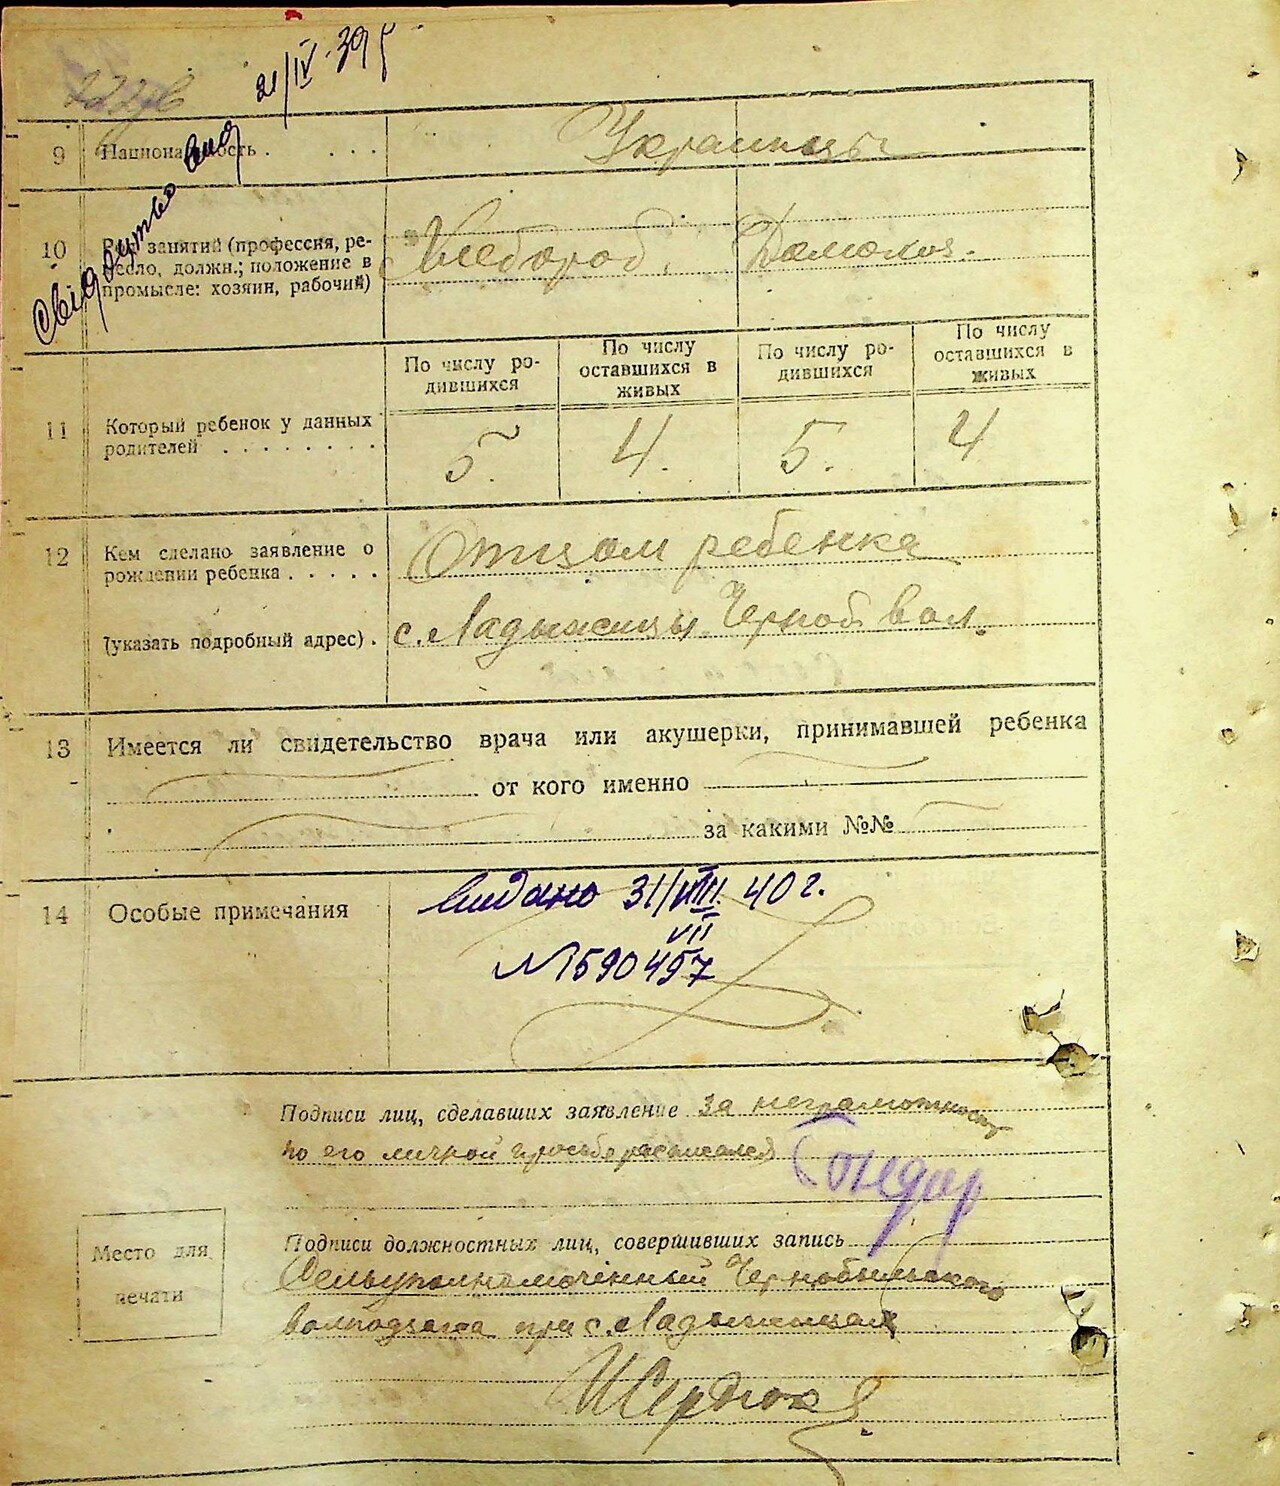 21/IV-39 р
Свідоцтво вид
9 Национальность . . . . Украинцы
10 Род занятий (профессия, ре-
месло, должн.; положение в
промысле: хозяин, рабочий)
Хлебороб. Домохоз.
По числу ро-
дившихся
По числу
оставшихся в
живых
По числу ро-
дившихся
По числу
оставшихся в
живых
11 Который ребенок у данных
родителей . . . . . . . .
5. 4. 5. 4
12 Кем сделано заявление о
рождении ребенка . . . . .
Отцом ребенка
(указать подробный адрес) . с. Ладыжицы Черноб вол.
13 Имеется ли свидетельство врача или акушерки, принимавшей ребенка
от кого именно
за какими №№
14 Особые примечания
видано 31/VIII 40 г.
VII
№ 590457
Подписи лиц, сделавших заявление за неграмотност
по его личной просьбе расписался Бондар
Подписи должностных лиц, совершивших запись
Сельуполномоченный Чернобыльского
волподзагса при с. Ладыжицах
И Сердюк
Место для
печати